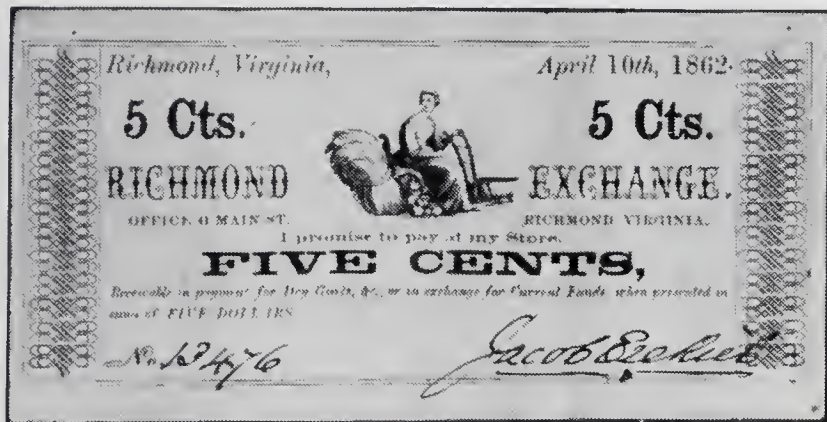 Richmond, Virginia, April 10th, 1862.
5 Cts. 5 Cts.
RICHMOND EXCHANGE.
OFFICE MAIN ST. RICHMOND VIRGINIA.
I promise to pay at my Store,
FIVE CENTS,
Receivable in payment for Dry Goods, &c., or in exchange for Current Funds when presented in
sums of FIVE DOLLARS
No 13476 Jacob Ezekiel